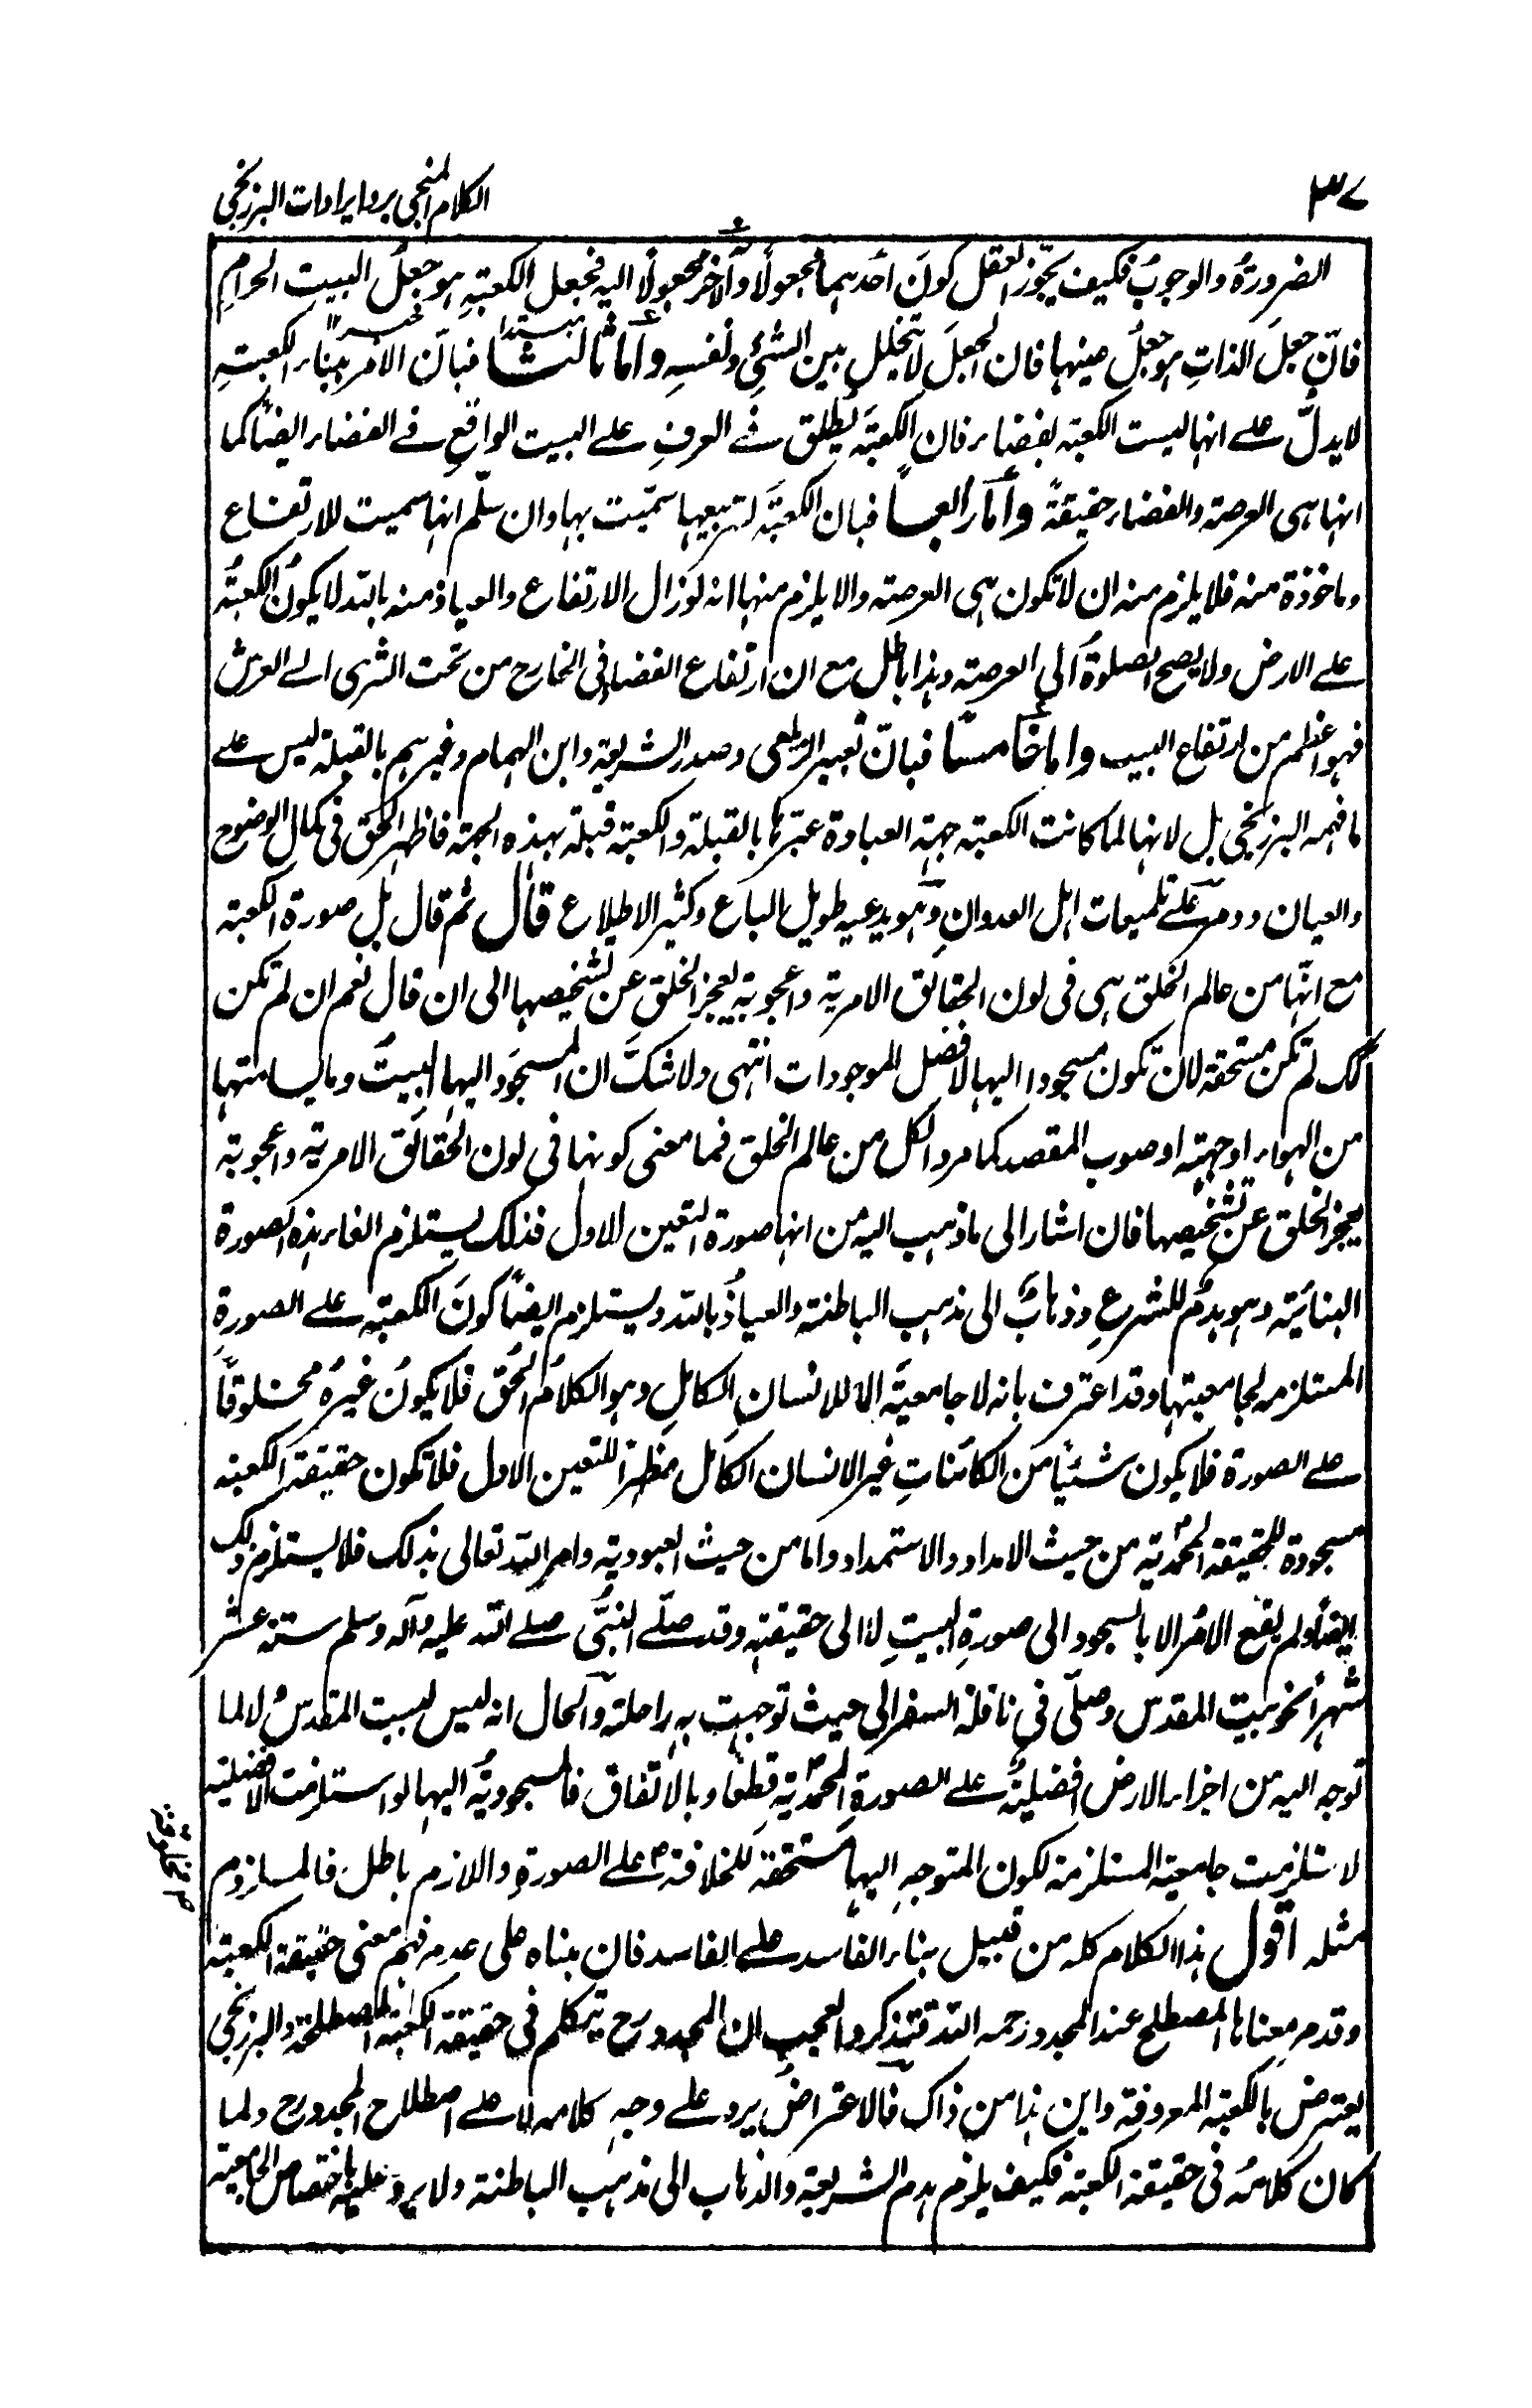 ٣٧
الكلام المنجى برد ايرادات البرزنجى
الضرورةُ والوجوبُ فكيف يجوّز العقل كونَ احدهما مجعولًا والآخر مجعولًا اليه فجعل الكعبةِ هو جعلُ البيت الحرامِ
فانّ جعلَ الذاتِ هو جعلُ عينها فان الجعلَ لا يتخلل بين الشئِ ونفسِه واما ثالثا فبانّ الامر ببناء الكعبةِ
لا يدلّ على انها ليست الكعبة بفضاء فان الكعبةَ يُطلق فى العرفِ على البيت الواقعِ فى الفضاء ايضًا كما
انها هى العرصة والفضاء حقيقةً وأما رابعا فبان الكعبةَ لتربيعها سمّيت بها وان سلّم انها سميت للارتفاع
وماخوذة منه فلا يلزم منه ان لا تكون هى العرصة والا يلزم منها انه لو زال الارتفاع والعياذ منه بالله لا يكونُ الكعبةُ
على الارض ولا يصح الصلوةُ الى العرصة وهذا باطل مع ان ارتفاع الفضاء فى الخارج من تحت الثرى الى العرش
فهو اعظم من ارتفاع البيت واما خامسا فبانّ تعبير الزيلعى وصدر الشريعة وابن الهمام وغيرهم بالقبلة ليس على
ما فهمه البرزنجى بل لانها لما كانت الكعبة جهة العبادة عبّر بها بالقبلة والكعبة قبلة بهذه الجهة فاظهر الحق فى كمال الوضوح
والعيان ودمر على تلميعات اهل العدوانِ وهو يدعيه طويل الباع وكثير الاطلاع قال ثم قال بل صورة الكعبة
مع انّها من عالم الخلق هى فى لون الحقائق الامرية واعجوبة يعجز الخلق عن تشخيصها الى ان قال نعم ان لم تكن
كك لم تكن مستحقه لان تكون مسجودا اليها لافضل الموجودات انتهى ولا شكَّ ان المسجودَ اليها البيتُ وما يسامتها
من الهواء او جهته او صوب المقصد كما مر والكل من عالم الخلق فما معنى كونها فى لون الحقائق الامرية واعجوبة
يعجز الخلق عن تشخيصها فان اشار الى ما ذهب اليه من انها صورة التعين الاول فذلك يستلزم الغاء هذه الصورة
البنائية وهو هدمٌ للشرعِ وذهابٌ الى مذهب الباطنة والعياذُ بالله ويستلزم ايضًا كونَ الكعبةِ على الصورةِ
المستلزمه لجامعيتها وقد اعترف بانه لا جامعيّة الا للانسانِ الكاملِ وهو الكلامُ الحُقّ فلا يكونُ غيرُه مخلوقًا
على الصورة فلا يكون شئيًا من الكائناتِ غير الانسان الكامل مظهرًا للتعين الاول فلا تكون حقيقة الكعبة
مسجودة للحقيقة المحمدية من حيث الامداد والاستمداد واما من حيث العبودية وامر الله تعالى بذلك فلا يستلزم ذلك
ايضًا ولم يقع الامر الا بالسجود الى صورةِ البيتِ لا الى حقيقته وقد صلّى النبىُّ صلى الله عليه وآله وسلم ستة عشر
شهرًا نحو بيت المقدس وصلّى فى نافلة السفر الى حيث توجهت به راحلته والحال انه ليس لبيت المقدسُ لا لما
توجه اليه من اجزاء الارض افضليةٌ على الصورة المحمّدية قطعًا وبالاتفاق فالمسجوديةُ اليها لو استلزمت الافضلية
لاستلزمت جامعية المستلزمة لكون المتوجهِ اليها مستحقة للخلافة على الصورة واللازم باطل فالملزوم
مثله اقول هذا الكلام كله من قبيل بناء الفاسد على الفاسد فان مبناه على عدم فهم معنى حقيقة الكعبة
وقد مر معناها المصطلح عند المجدد رحمه الله فتذكر والعجب ان المجدد رح يتكلم فى حقيقة الكعبة المصطلحة والبرزنجى
يعترض بالكعبة المعروفة واين هذا من ذاك فالاعتراضُ يرد على وجهِ كلامه لا على اصطلاح المجدد رح ولما
كان كلامُه فى حقيقة الكعبة فكيف يلزم هدم الشريعة والذهاب الى مذهب الباطنة ولا يرد عليه باختصاص الجامعية